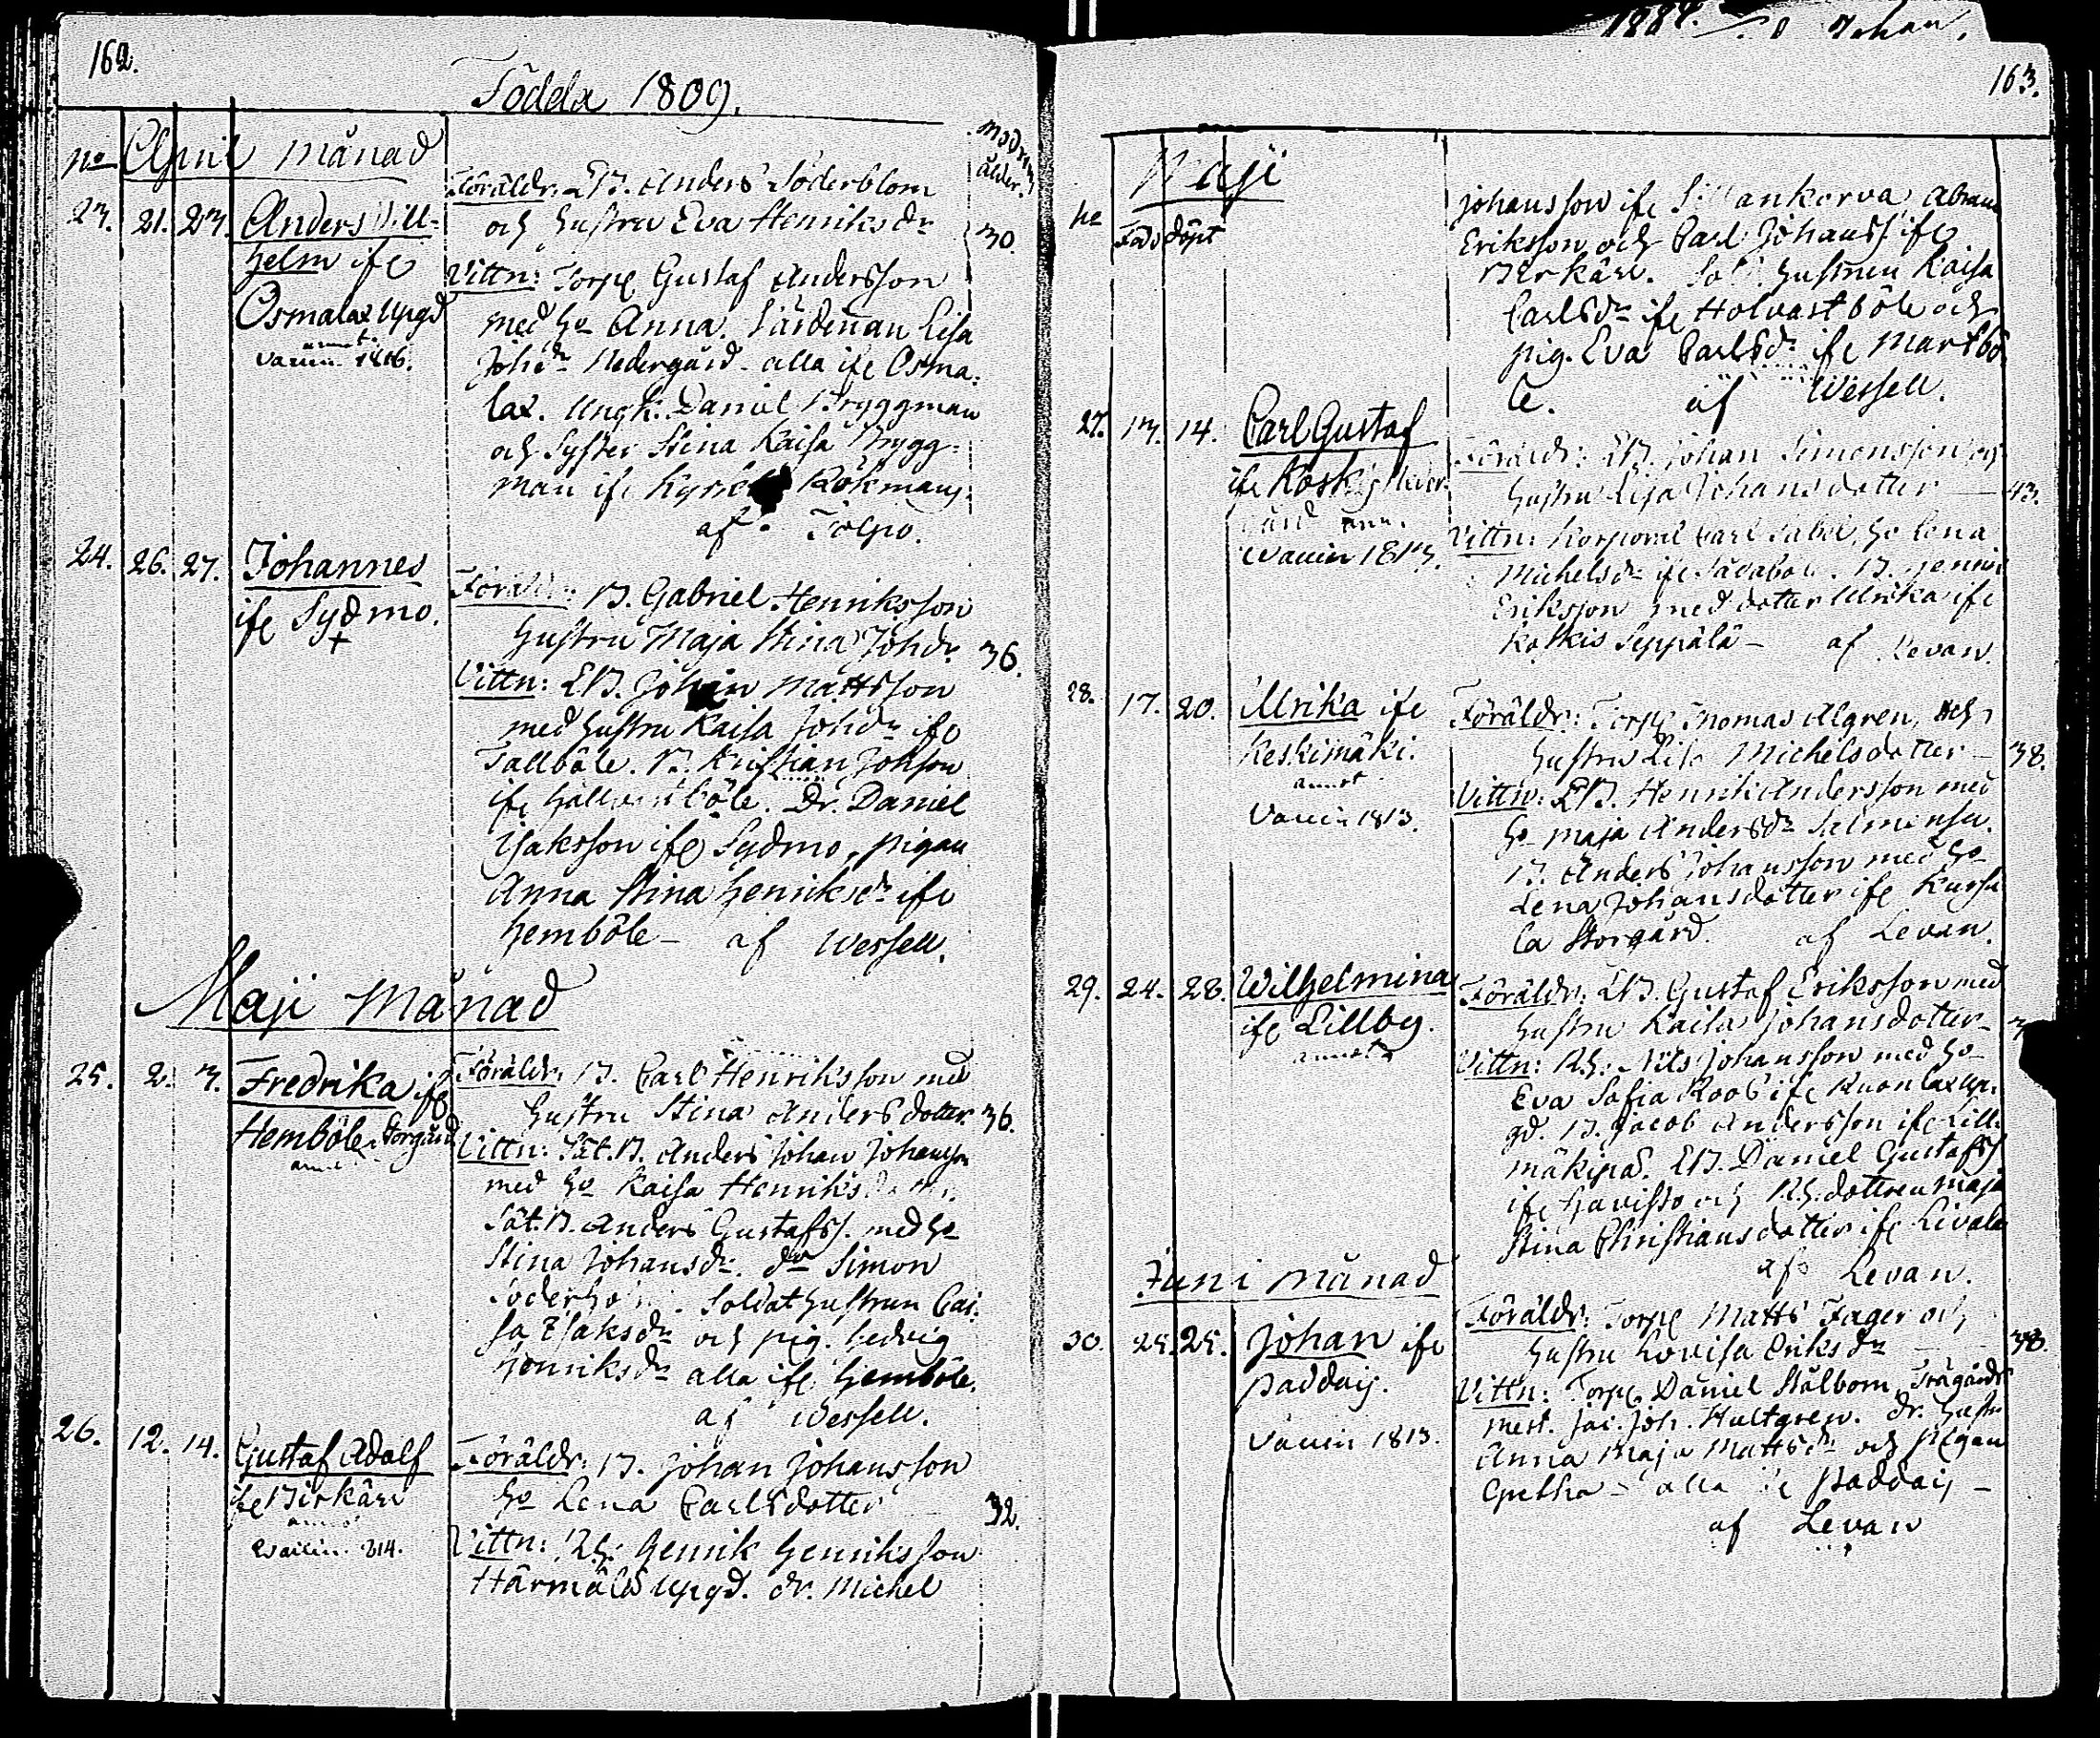 162.
Födda 1809.
No April månad
Modrens ålder.
23. 21. 23. Anders Will-
helm ifr
Osmalax Upgd
annot.
Vaccin. 1816.
Föräldr. LB. Anders Söderblom
och hustru Eva Henriksdr 30.
Vittn: Torp. Gustaf Andersson
med ho Anna. Lisa
Johdr Nedergård alla ifr Osma-
lax. Ungk. Daniel Bryggman
och Syster Stina Kaisa Brygg-
man ifr Rökmans
af Tolpo.
24. 26. 27. Johannes
ifr Sydmo.
+
Föräldr: B. Gabriel Henriksson
hustru Maja Stina Johdr 36.
Vittn: LB. Johan Mattsson
med hustru Kaisa Johdr ifr
Tallböle. B. Kristian Johsson
ifr Dr. Daniel
Isaksson ifr Sydmo, pigan
Anna Stina Henriksdr ifr
Hemböle - af Wessell.
Maji Månad
25. 2. 3. Fredrika ifr
Hemböle Storgård
Föräldr. B. Carl Henriksson med
hustru Stina Andersdotter. 36.
Vittn: Sät.B. Anders Johan Johansson
med ho Kaisa Henriks
Sät.B. Anders Gustafss. med ho
Stina Johansdr. dr Simon
Soldathustrun Cai-
sa Isaksdr och pig. Hedvig
Henriksdr alla ifr Hemböle.
af Wessell.
26. 12. 14. Gustaf Adolf
ifr Birkärr
Vaccin. 814.
Föräldr: B. Johan Johansson
ho Lena Carlsdotter 32.
Vittn: Rh: Henrik Henriksson
Härmälä Upgd. dr. Michel
163.
Maji
No
Föd döpt
Johansson ifr Sillankorva Abram
Eriksson och Carl Johanss ifr
Birkärr. hustrun Kaisa
Carlsdr ifr Holvastböle och
pig. Eva Carlsdr ifr Martbö-
le. af Wessell.
27. 13. 14. Carl Gustaf
ifr Koskis Neder-
gård ann.
Vaccin 1813.
Föräldr: LB. Johan Simonsson och
hustru Lisa Johansdotter 43.
Vittn: Korporal Carl ho Lena
Michelsdr ifr B. Henrik
Eriksson med dotter Ulrika ifr
Koskis Seppälä - af Levan.
28. 17. 20. Ulrika ifr
Keskimäki.
annot
Vaccin 1813.
Föräldr: Torp. Thomas Algren, och
hustru Lisa Michelsdotter 38.
Vittn: LB. Henrik Andersson med
ho Maja Andersdr
B. Anders Johansson med ho
Lena Johansdotter ifr Kursa-
la Storgård. af Levan.
29. 24. 28. Wilhelmina
ifr Lillby.
annot
Föräldr: LB. Gustaf Eriksson med
hustru Kaisa Johansdotter
Vittn: Rh: Nils Johansson med ho
Eva Sofia Roos ifr Ruonlax Up.
gd. B. Jacob Andersson ifr Lill-
LB. Daniel Gustafss
ifr och Rh.dottren Maja
Stina Christiansdotter ifr
af Levan.
Juni månad
30. 25. 25. Johan ifr
Paddais.
Vaccin 1813.
Föräldr: Torp. Matts Fager och
hustru Lovisa Eriksdr 38.
Vittn: Torp. Daniel Stålbom, Trägårds-
mest. Jac. Joh. Hultgren. dr. hustr
Anna Maja Mattsdr och pigan
Gretha - alla ifr Paddais -
af Levan